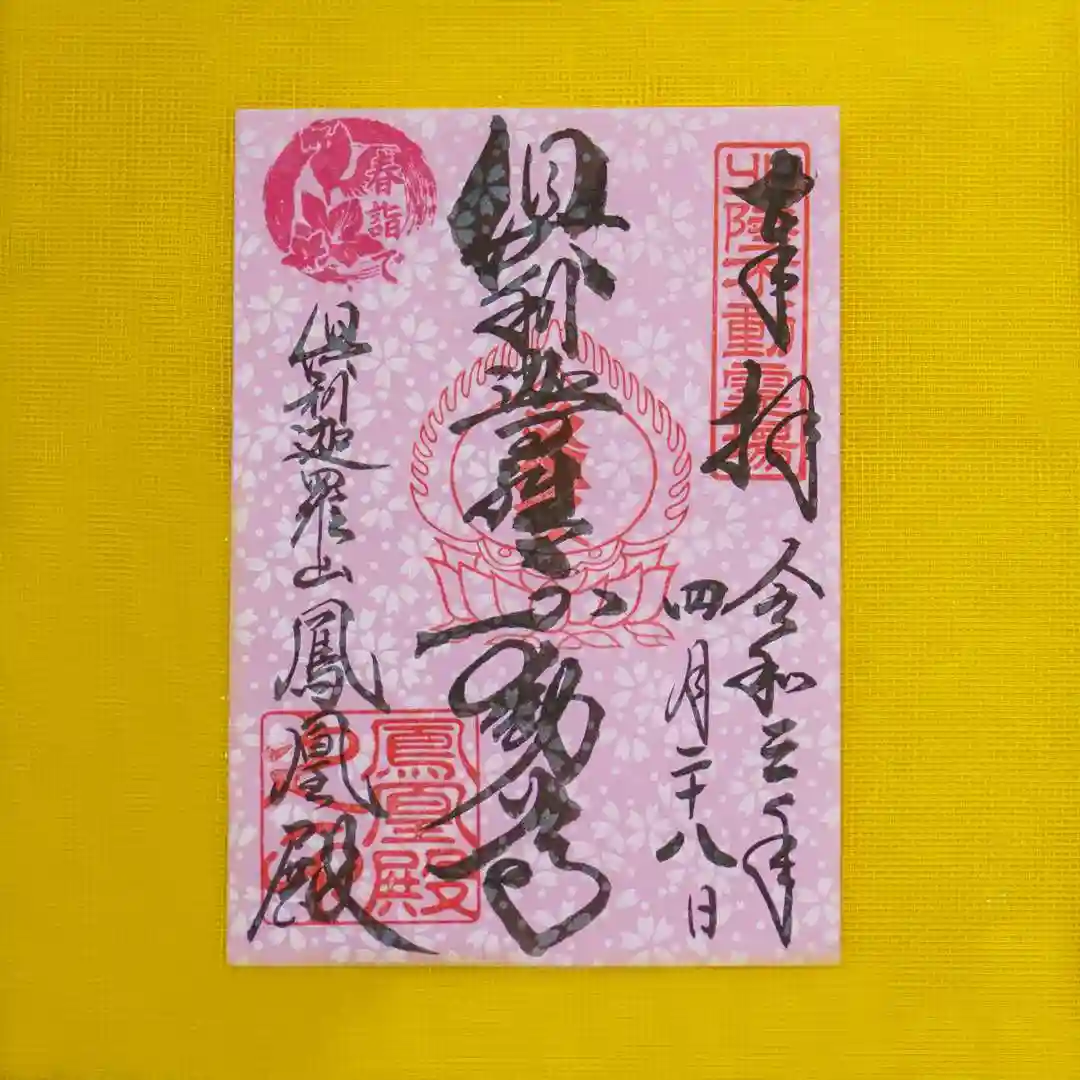 奉拝
北陸不動霊場
令和三年
四月二十八日
倶利迦羅不動尊
春詣で
倶利迦羅山鳳凰殿
鳳凰殿